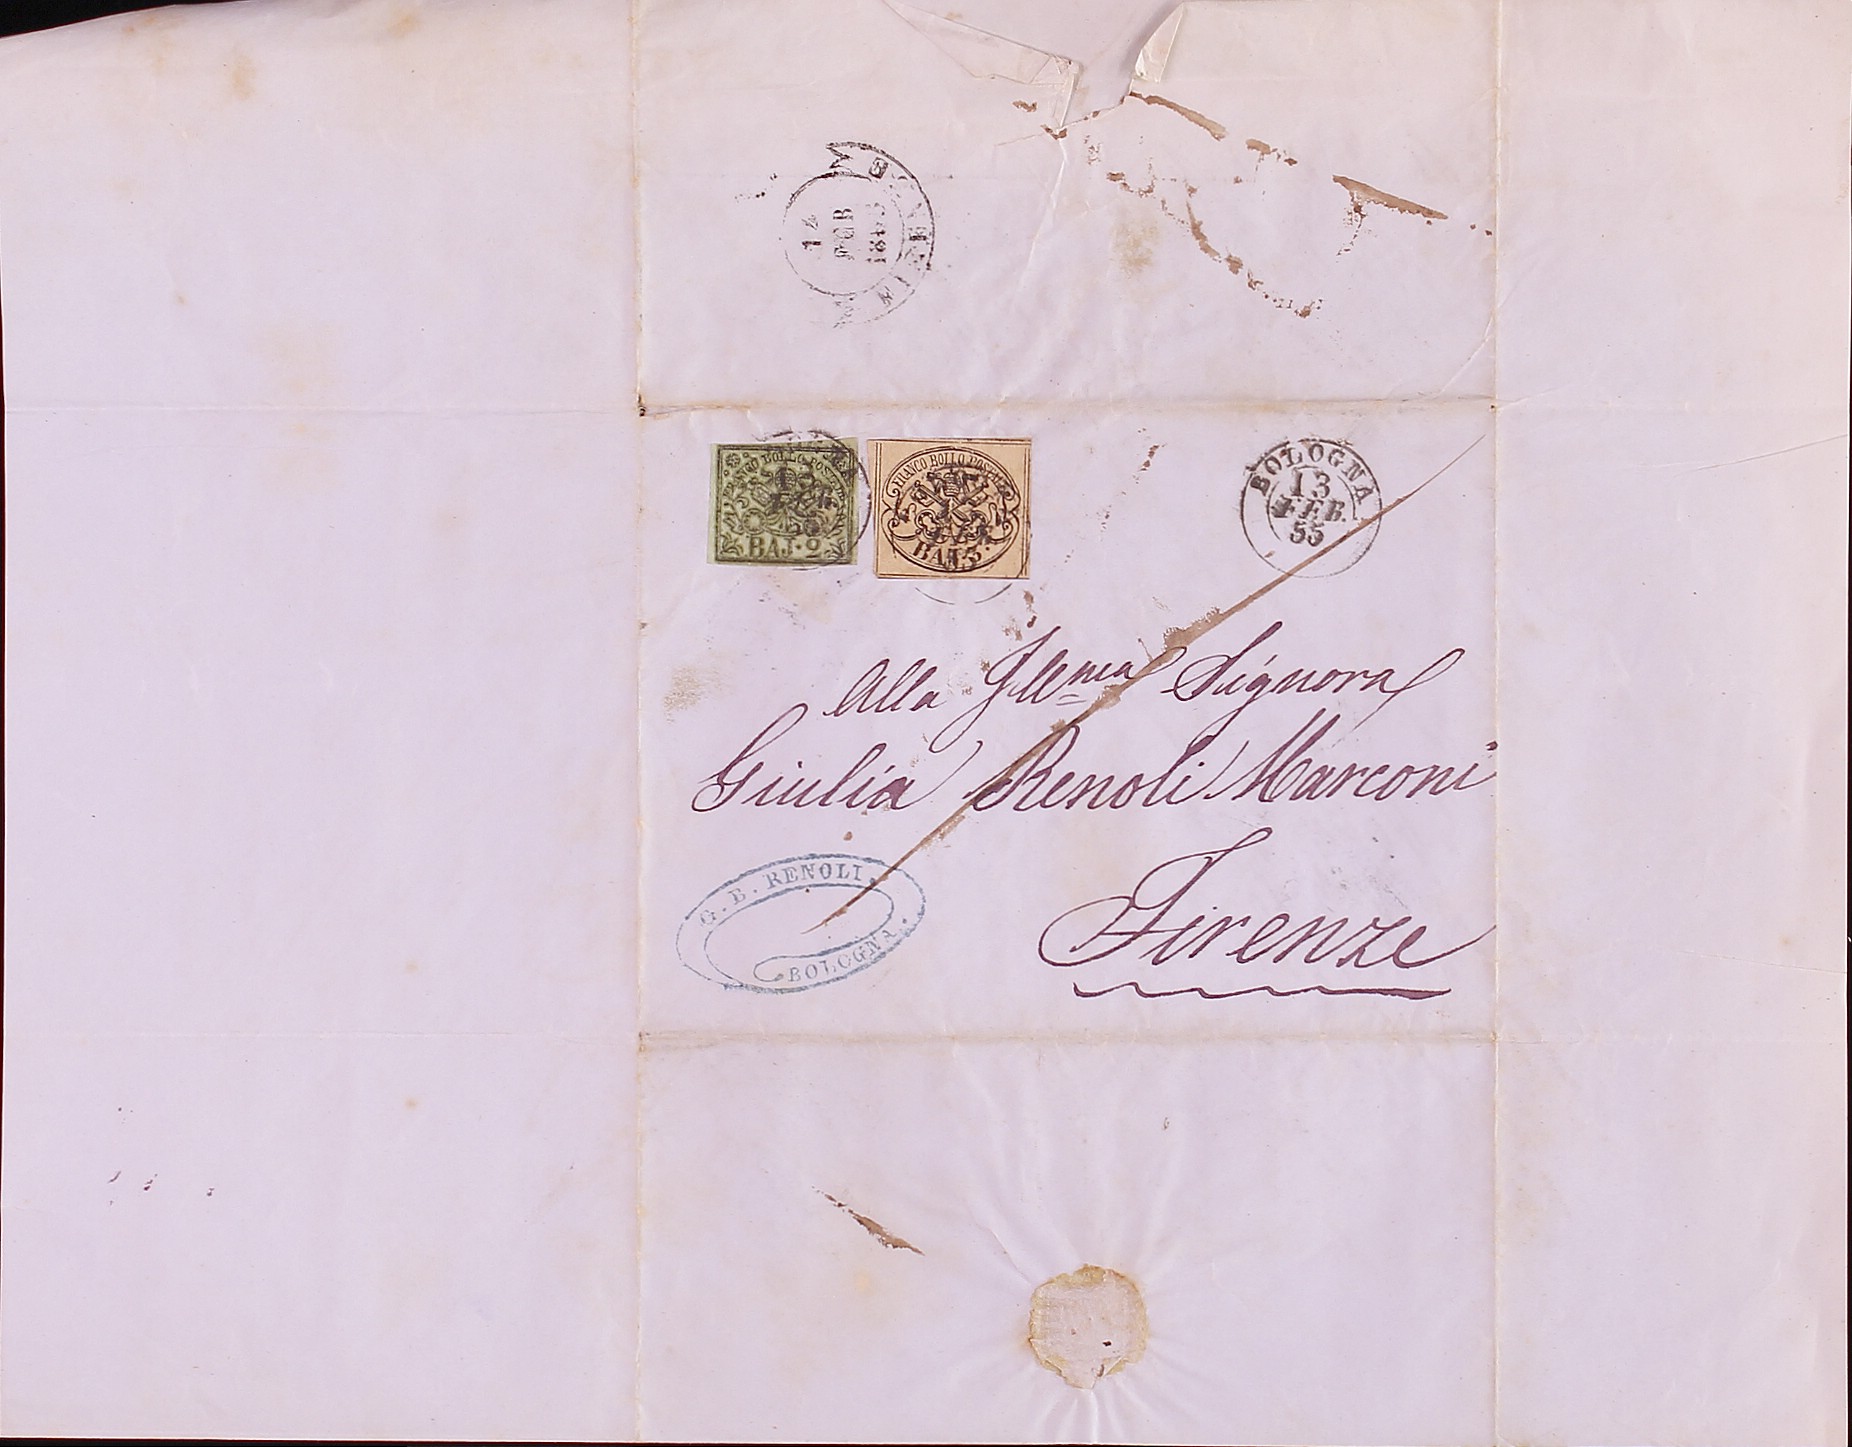 14
FEB
FIRENZE
FRANCO BOLLO POSTALE
BAJ. 2
FRANCO BOLLO POSTALE
BAJ. 3.
BOLOGNA
13
FEB.
55
Alla Ill.ma Signora
Giulia Renoli Marconi
Firenze
G. B. RENOLI.
BOLOGNA.